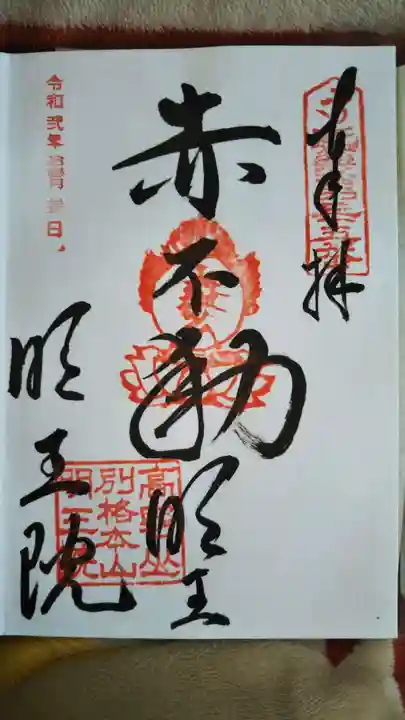 奉拝
赤不動明王
明王院
高野山
別格本山
明王院
令和弐年
日